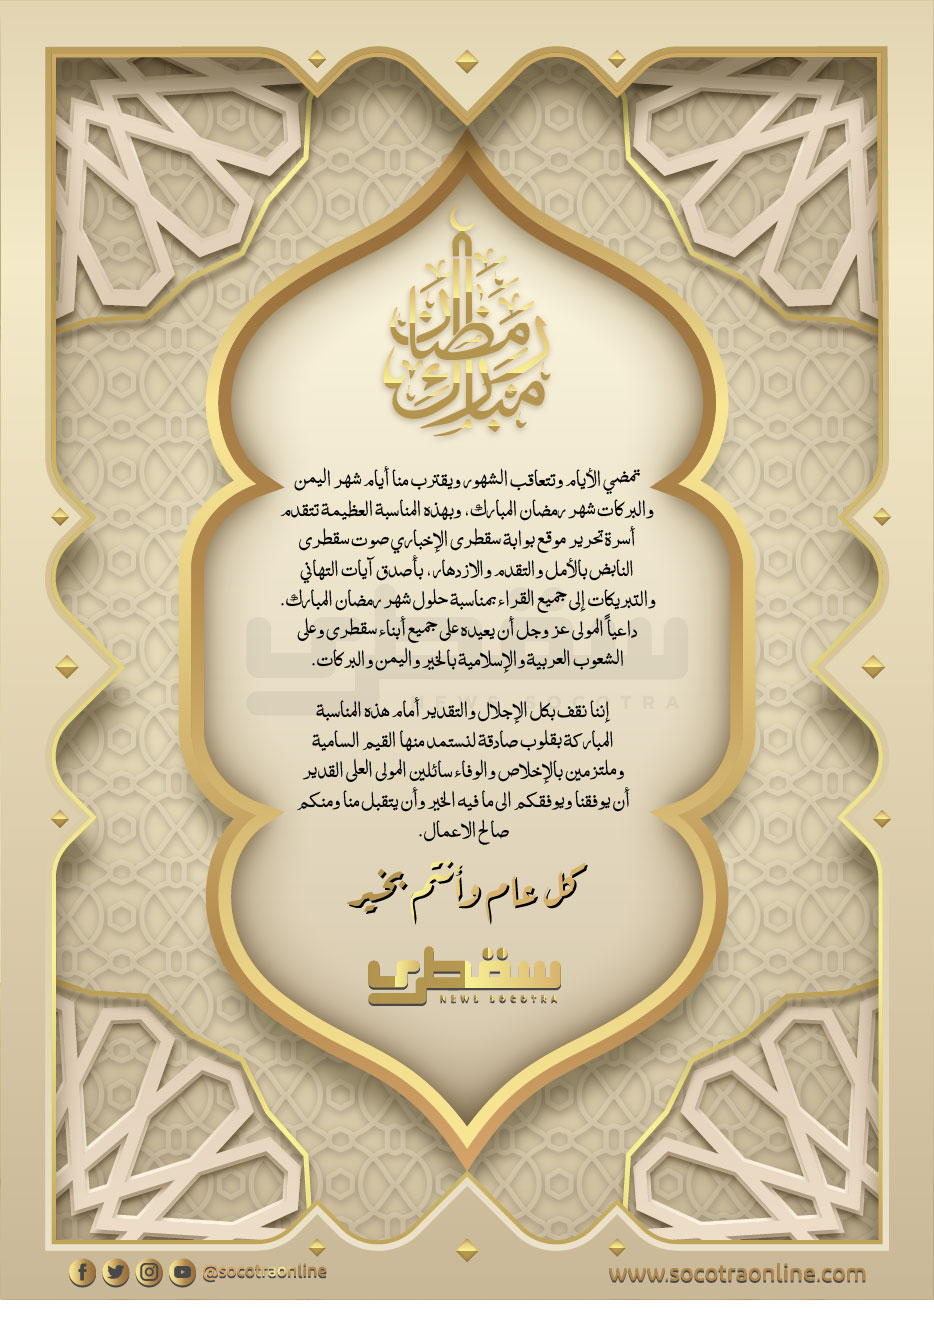 رمضان
مبارك
تمضي الأيام وتتعاقب الشهور ويقترب منا أيام شهر اليمن
والبركات شهر رمضان المبارك، وبهذه المناسبة العظيمة تتقدم
أسرة تحرير موقع بوابة سقطرى الإخباري صوت سقطرى
النابض بالأمل والتقدم والازدهار، بأصدق آيات التهاني
والتبريكات إلى جميع القراء بمناسبة حلول شهر رمضان المبارك.
داعياً المولى عز وجل أن يعيده على جميع أبناء سقطرى وعلى
الشعوب العربية والإسلامية بالخير واليمن والبركات.
إننا نقف بكل الإجلال والتقدير أمام هذه المناسبة
المباركة بقلوب صادقة لنستمد منها القيم السامية
وملتزمين بالإخلاص والوفاء سائلين المولى العلى القدير
أن يوفقنا ويوفقكم الى ما فيه الخير وأن يتقبل منا ومنكم
صالح الاعمال.
كل عام وأنتم بخير
سقطرى
NEWS SOCOTRA
@socotraonline
www.socotraonline.com